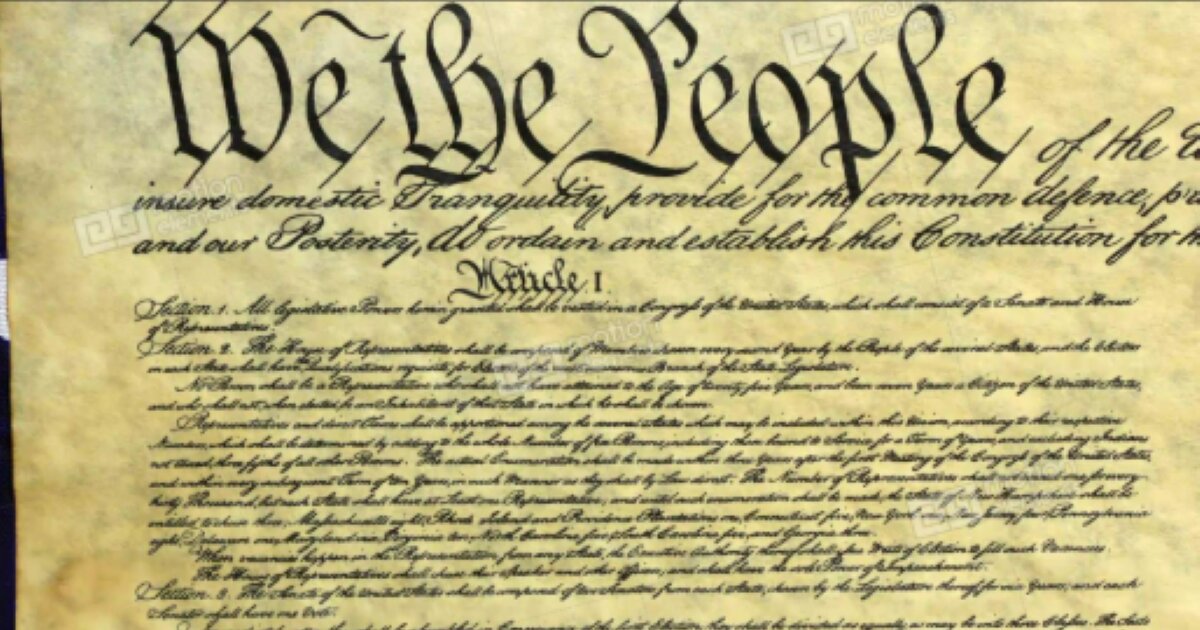 We the People of the
insure domestic Tranquility, provide for the common defence,
and our Posterity, do ordain and establish this Constitution for
Article. I.
Section. 1. All legislative Powers herein granted shall be vested in a Congress of the United States, which shall consist of a Senate and House
of Representatives.
Section. 2. The House of Representatives shall be composed of Members chosen every second Year by the People of the several States, and the Electors
in each State shall have the Qualifications requisite for Electors of the most numerous Branch of the State Legislature.
No Person shall be a Representative who shall not have attained to the Age of twenty five Years, and been seven Years a Citizen of the United States,
and who shall not, when elected, be an Inhabitant of that State in which he shall be chosen.
Representatives and direct Taxes shall be apportioned among the several States which may be included within this Union, according to their respective
Numbers, which shall be determined by adding to the whole Number of free Persons, including those bound to Service for a Term of Years, and excluding Indians
not taxed, three fifths of all other Persons. The actual Enumeration shall be made within three Years after the first Meeting of the Congress of the United States,
and within every subsequent Term of ten Years, in such Manner as they shall by Law direct. The Number of Representatives shall not exceed one for every
thirty Thousand, but each State shall have at Least one Representative; and until such enumeration shall be made, the State of New Hampshire shall be
entitled to chuse three, Massachusetts eight, Rhode Island and Providence Plantations one, Connecticut five, New York six, New Jersey four, Pennsylvania
eight, Delaware one, Maryland six, Virginia ten, North Carolina five, South Carolina five, and Georgia three.
When vacancies happen in the Representation from any State, the Executive Authority thereof shall issue Writs of Election to fill such Vacancies.
The House of Representatives shall chuse their Speaker and other Officers; and shall have the sole Power of Impeachment.
Section. 3. The Senate of the United States shall be composed of two Senators from each State, chosen by the Legislature thereof, for six Years; and each
Senator shall have one Vote.